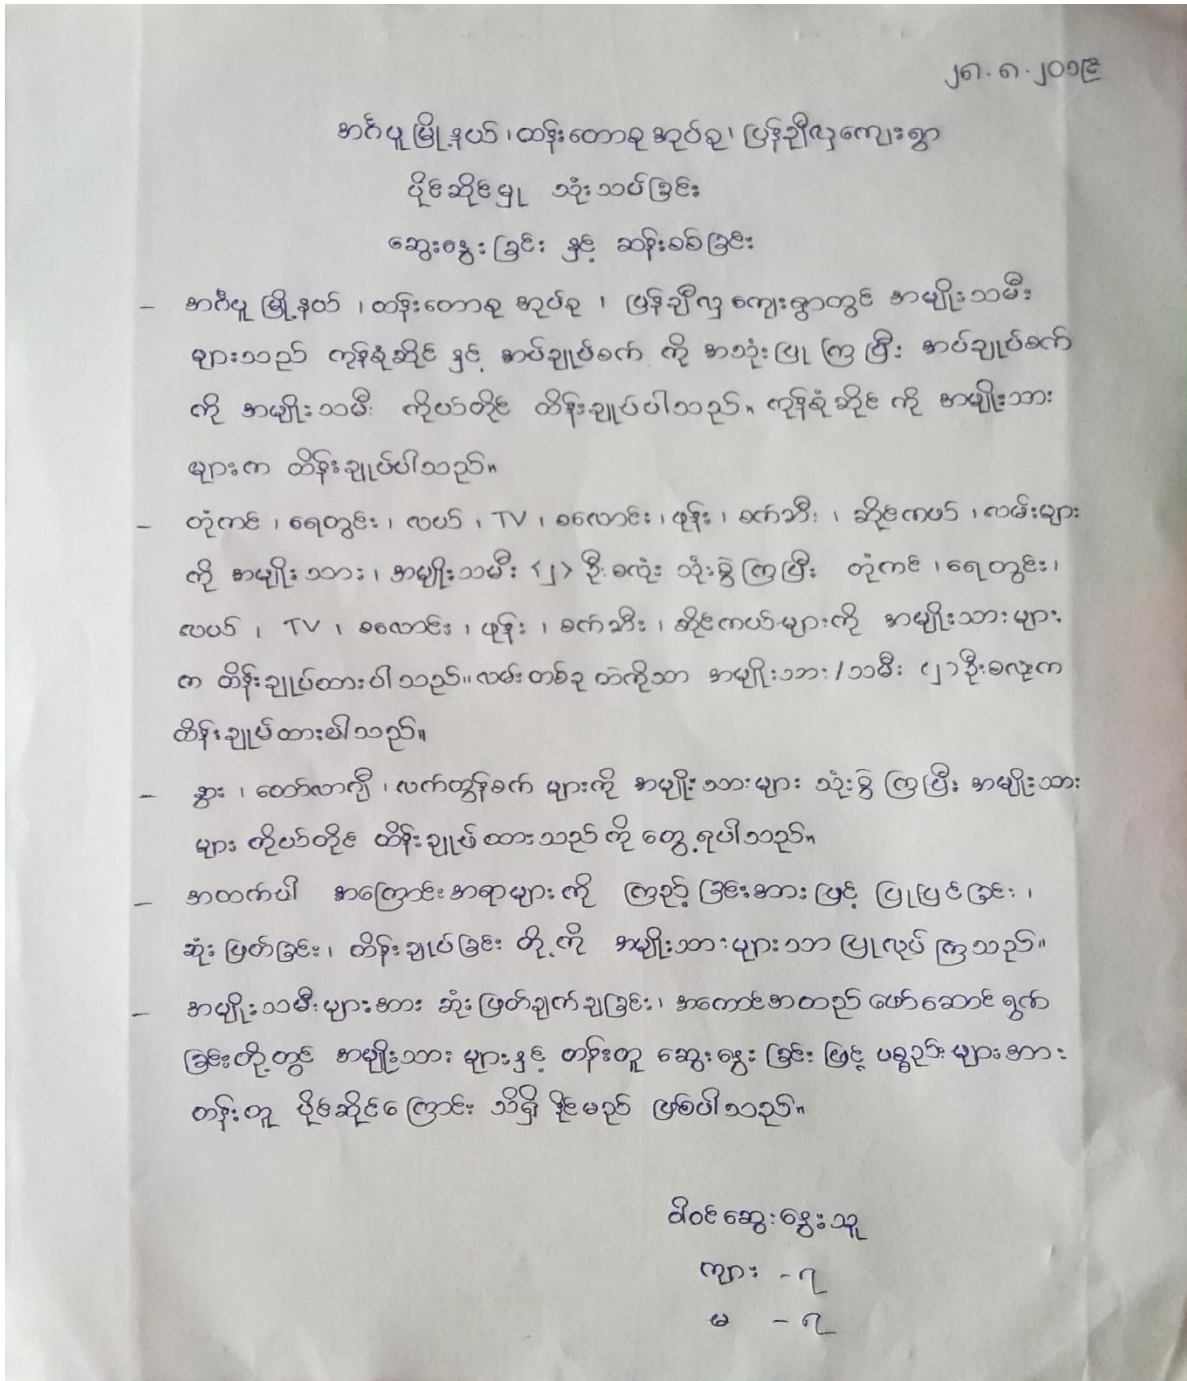 ၂၈.၈.၂၀၁၉
အင်္ဂပူမြို့နယ်၊ ထန်းတောခုအုပ်စု၊ ပြန်ချီလှကျေးရွာ
ပိုင်ဆိုင်မှု သုံးသပ်ခြင်း
ဆွေးနွေးခြင်း နှင့် ဆန်းစစ်ခြင်း
– အင်္ဂပူမြို့နယ်၊ ထန်းတောခုအုပ်စု၊ ပြန်ချီလှကျေးရွာတွင် အမျိုးသမီး
များသည် ကုန်စုံဆိုင် နှင့် အပ်ချုပ်စက် ကို အသုံးပြုကြပြီး အပ်ချုပ်စက်
ကို အမျိုးသမီး ကိုယ်တိုင် ထိန်းချုပ်ပါသည်။ ကုန်စုံဆိုင် ကို အမျိုးသား
များက ထိန်းချုပ်ပါသည်။
– တုံကင်၊ ရေတွင်း၊ လယ်၊ TV၊ စလောင်း၊ ဖုန်း၊ စက်ဘီး၊ ဆိုင်ကယ်၊ လမ်းများ
ကို အမျိုးသား၊ အမျိုးသမီး (၂) ဦးစလုံး သုံးစွဲကြပြီး တုံကင်၊ ရေတွင်း၊
လယ်၊ TV၊ စလောင်း၊ ဖုန်း၊ စက်ဘီး၊ ဆိုင်ကယ်များကို အမျိုးသားများ
က ထိန်းချုပ်ထားပါသည်။ လမ်းတစ်ခုထဲကိုသာ အမျိုးသား/သမီး (၂) ဦးစလုံးက
ထိန်းချုပ်ထားပါသည်။
– နွား၊ ထော်လာဂျီ၊ လက်တွန်စက် များကို အမျိုးသားများ သုံးစွဲကြပြီး အမျိုးသား
များ ကိုယ်တိုင် ထိန်းချုပ်ထားသည်ကို တွေ့ရပါသည်။
– အထက်ပါ အကြောင်းအရာများကို ကြည့်ခြင်းအားဖြင့် ပြုပြင်ခြင်း၊
ဆုံးဖြတ်ခြင်း၊ ထိန်းချုပ်ခြင်း တို့ကို အမျိုးသားများသာ ပြုလုပ်ကြသည်။
– အမျိုးသမီးများအား ဆုံးဖြတ်ချက်ချခြင်း၊ အကောင်အထည်ဖော်ဆောင်ရွက်
ခြင်းတို့တွင် အမျိုးသားများနှင့် တန်းတူ ဆွေးနွေးခြင်းဖြင့် ပစ္စည်းများအား
တန်းတူ ပိုင်ဆိုင်ကြောင်း သိရှိနိုင်မည် ဖြစ်ပါသည်။
ပါဝင်ဆွေးနွေးသူ
ကျား - ၇
မ - ၇